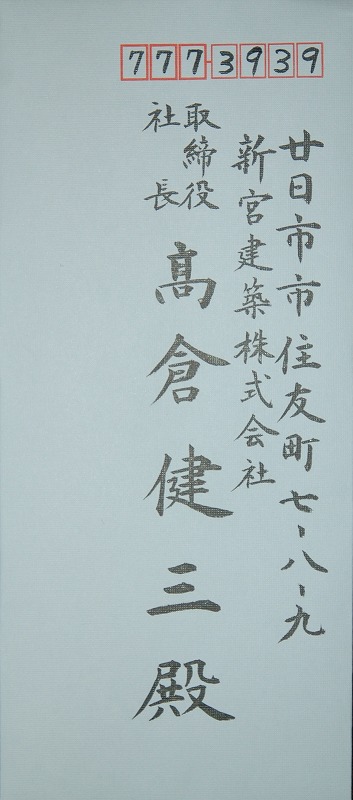 777-3939
廿日市市住友町七-八-九
新宮建築株式会社
取締役
社長
髙倉健三殿